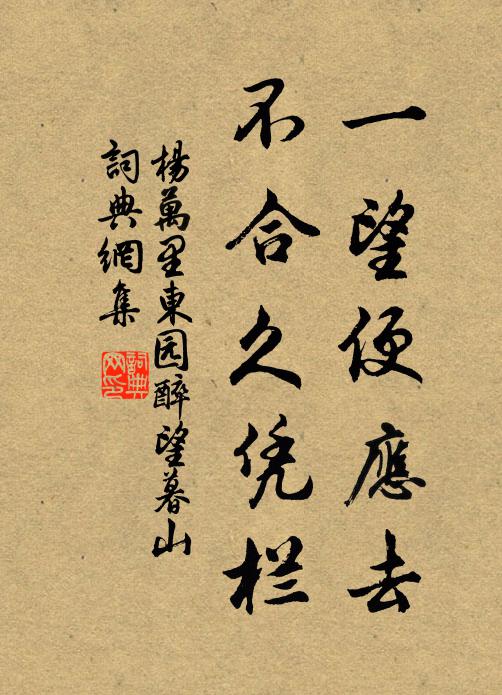 一望便應去
不合久凭栏
楊萬里東园醉望暮山
詞典網集
詞典网印